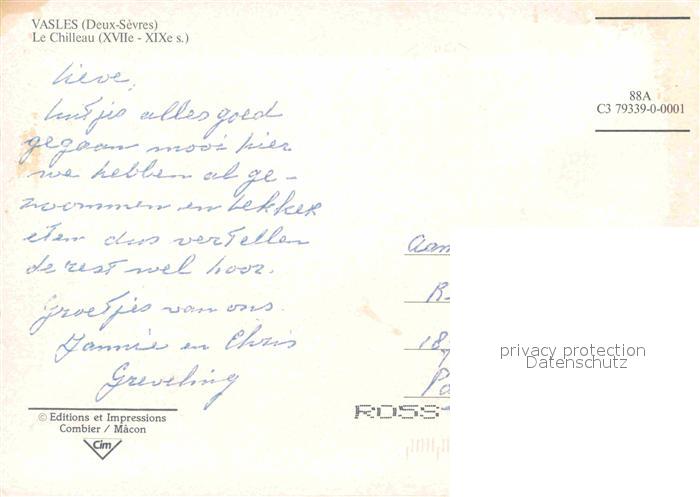 VASLES (Deux-Sèvres)
Le Chilleau (XVIIe - XIXe s.)
88A
C3 79339-0-0001
Lieve,
alles goed
gegaan mooi hier
we hebben al ge-
zwommen en lekker
eten dus vertellen
de rest wel hoor.
Groetjes van ons.
Jannie en Chris
Greveling
Aan
R
18
Pa
privacy protection
Datenschutz
ROSS
© Editions et Impressions
Combier / Mâcon
Cim